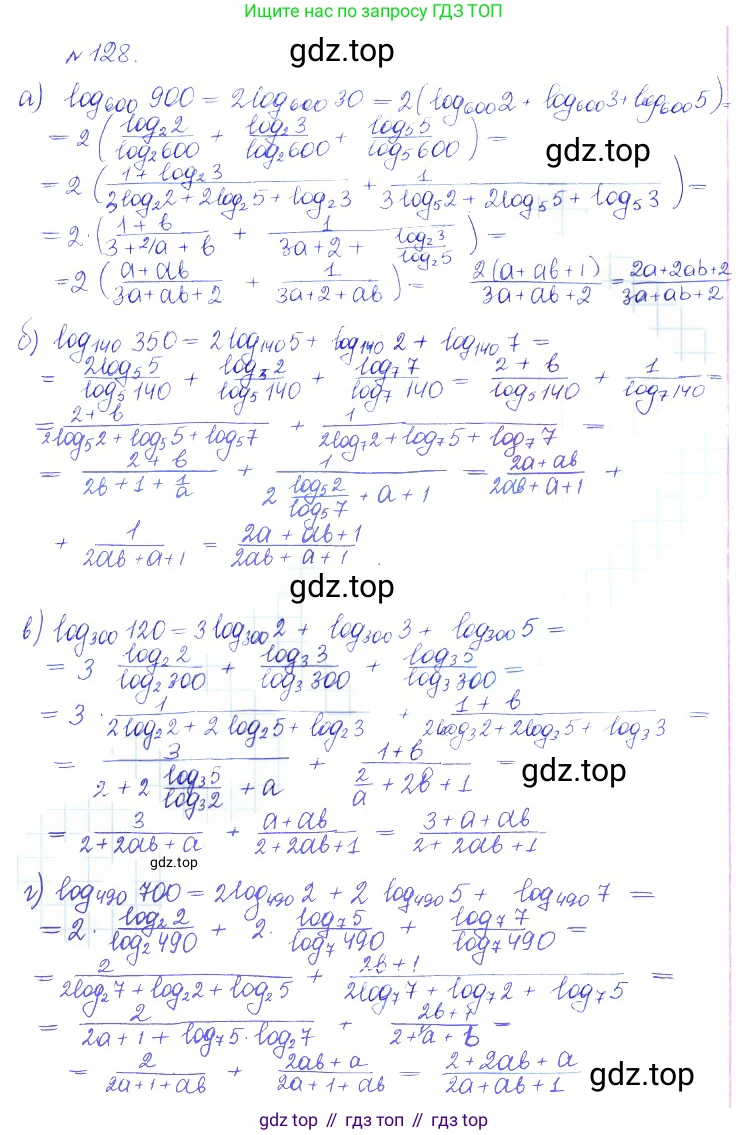 Ищите нас по запросу ГДЗ ТОП
№128.
gdz.top
а) log₆₀₀ 900 = 2log₆₀₀ 30 = 2(log₆₀₀2 + log₆₀₀3 + log₆₀₀5) =
= 2 (log₂2/log₂600 + log₂3/log₂600 + log₅5/log₅600) =
gdz.top
= 2 ((1 + log₂3)/(3log₂2 + 2log₂5 + log₂3) + 1/(3log₅2 + 2log₅5 + log₅3)) =
= 2·((1 + b)/(3 + 2/a + b) + 1/(3a + 2 + log₂3/log₂5)) =
= 2 ((a + ab)/(3a + ab + 2) + 1/(3a + 2 + ab)) = 2(a + ab + 1)/(3a + ab + 2) = (2a + 2ab + 2)/(3a + ab + 2)
б) log₁₄₀ 350 = 2log₁₄₀5 + log₁₄₀2 + log₁₄₀7 =
= 2log₅5/log₅140 + log₅2/log₅140 + log₇7/log₇140 = (2 + b)/log₅140 + 1/log₇140 =
= (2 + b)/(2log₅2 + log₅5 + log₅7) + 1/(2log₇2 + log₇5 + log₇7) =
= (2 + b)/(2b + 1 + 1/a) + 1/(2 log₅2/log₅7 + a + 1) = (2a + ab)/(2ab + a + 1) +
+ 1/(2ab + a + 1) = (2a + ab + 1)/(2ab + a + 1).
gdz.top
в) log₃₀₀ 120 = 3log₃₀₀2 + log₃₀₀3 + log₃₀₀5 =
= 3 log₂2/log₂300 + log₃3/log₃300 + log₃5/log₃300 =
= 3 · 1/(2log₂2 + 2log₂5 + log₂3) + (1 + b)/(2log₃2 + 2log₃5 + log₃3) =
= 3/(2 + 2 log₃5/log₃2 + a) + (1 + b)/(2/a + 2b + 1) =
gdz.top
= 3/(2 + 2ab + a) + (a + ab)/(2 + 2ab + 1) = (3 + a + ab)/(2 + 2ab + 1)
gdz.top
г) log₄₉₀ 700 = 2log₄₉₀2 + 2 log₄₉₀5 + log₄₉₀7 =
= 2· log₂2/log₂490 + 2· log₇5/log₇490 + log₇7/log₇490 =
= 2/(2log₂7 + log₂2 + log₂5) + (2b + 1)/(2log₇7 + log₇2 + log₇5) =
= 2/(2a + 1 + log₇5·log₂7) + (2b + 1)/(2 + 1/a + b) =
= 2/(2a + 1 + ab) + (2ab + a)/(2a + 1 + ab) = (2 + 2ab + a)/(2a + ab + 1)
gdz.top
gdz top // гдз топ // gdz.top